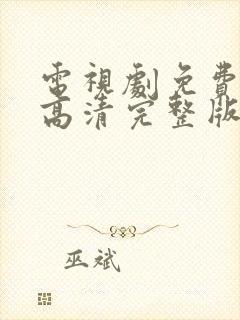 電視劇免費
高清完整版
巫斌